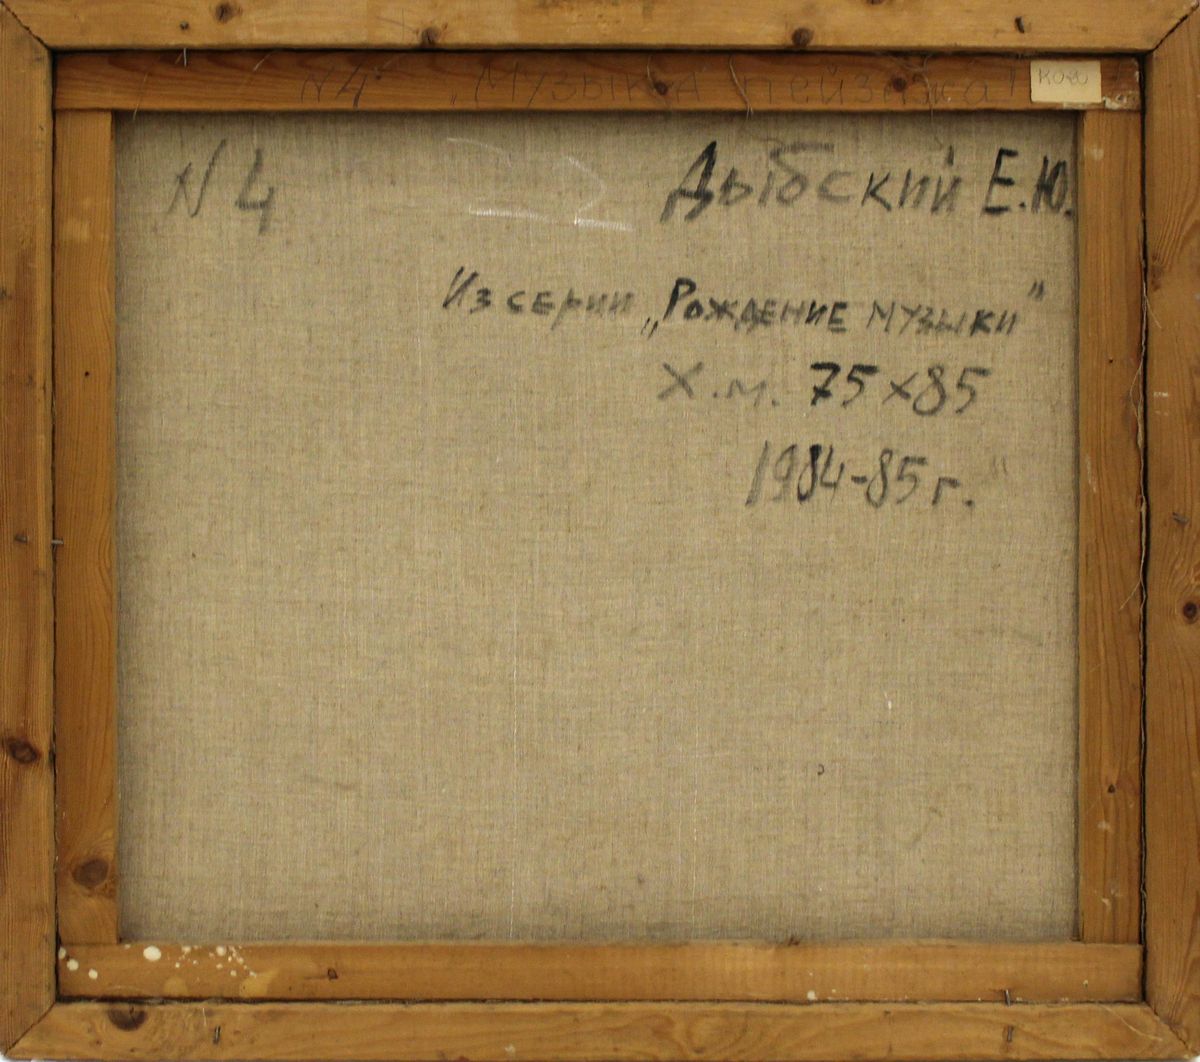 N4 „Музыка пейзажа"
N 4
Дыбский Е.Ю.
Из серии „Рождение музыки"
Х.м. 75x85
1984-85 г.